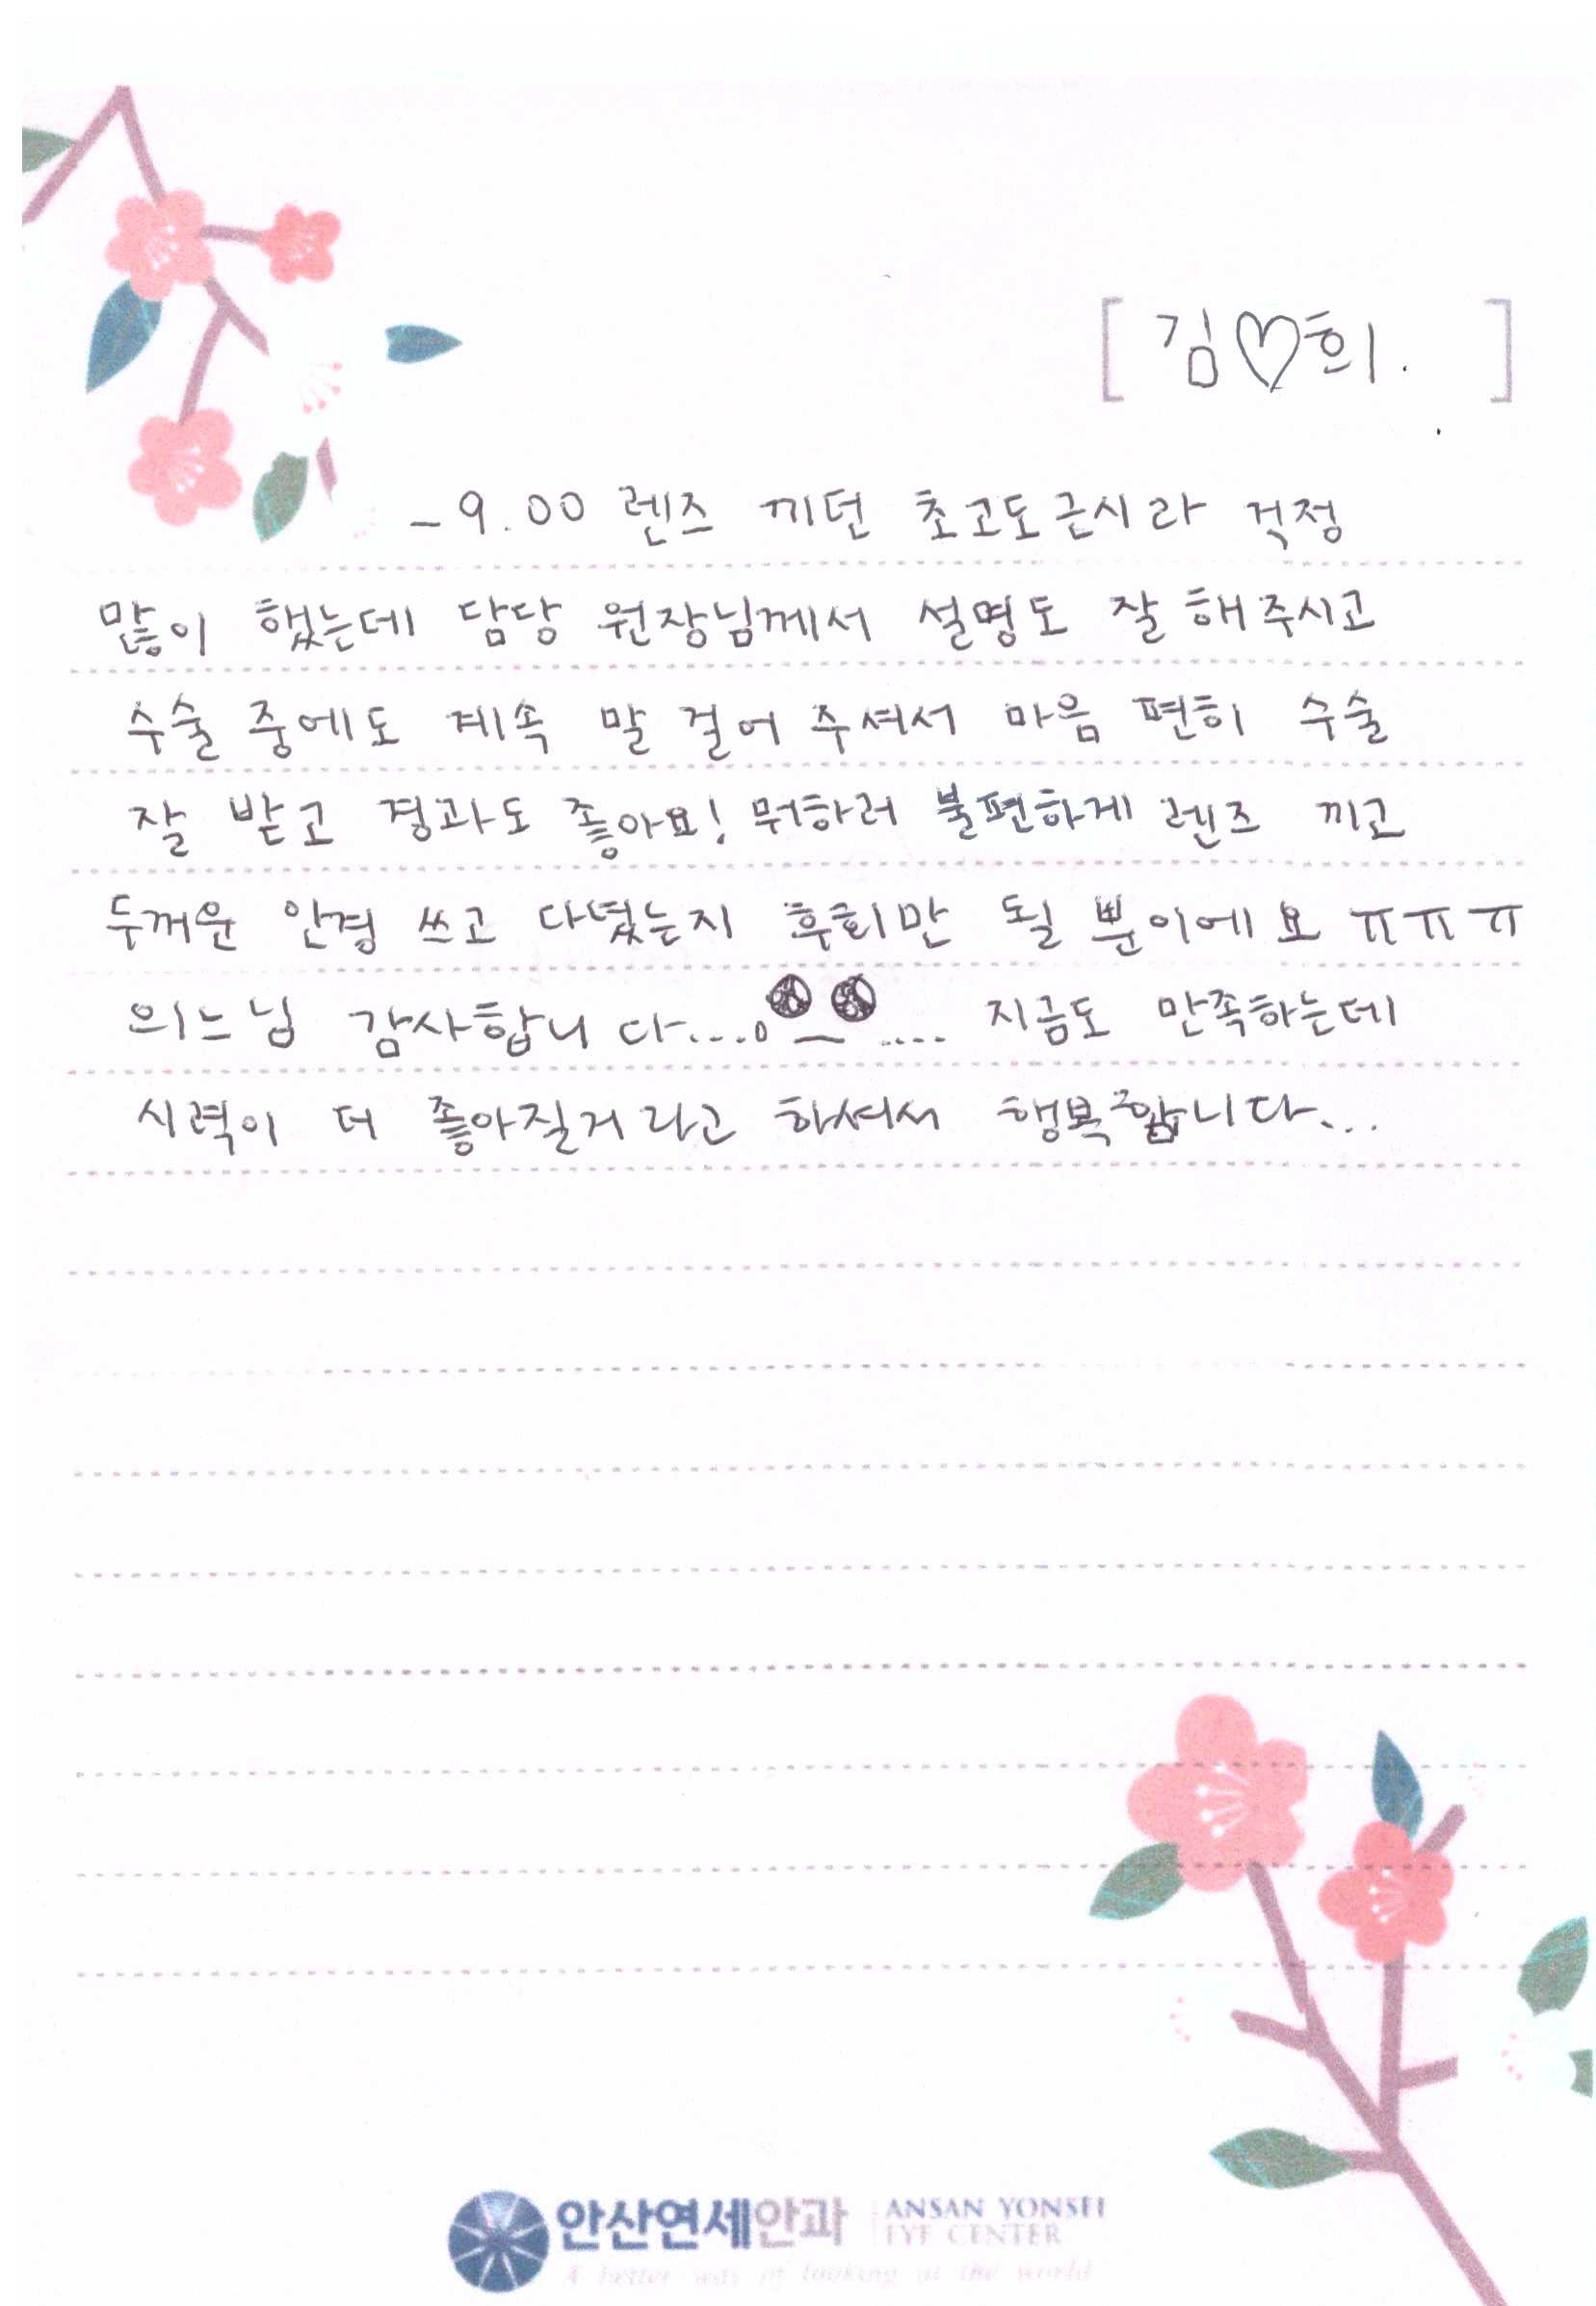 [ 김♡희. ]
-9.00 렌즈 끼던 초고도근시라 걱정
많이 했는데 담당 원장님께서 설명도 잘 해주시고
수술 중에도 계속 말 걸어 주셔서 마음 편히 수술
잘 받고 경과도 좋아요! 뭐하러 불편하게 렌즈 끼고
두꺼운 안경 쓰고 다녔는지 후회만 될 뿐이에요 ㅠㅠㅠ
의느님 감사합니다.... .... 지금도 만족하는데
시력이 더 좋아질거라고 하셔서 행복합니다...
안산연세안과 ANSAN YONSEI
EYE CENTER
A better way of looking at the world